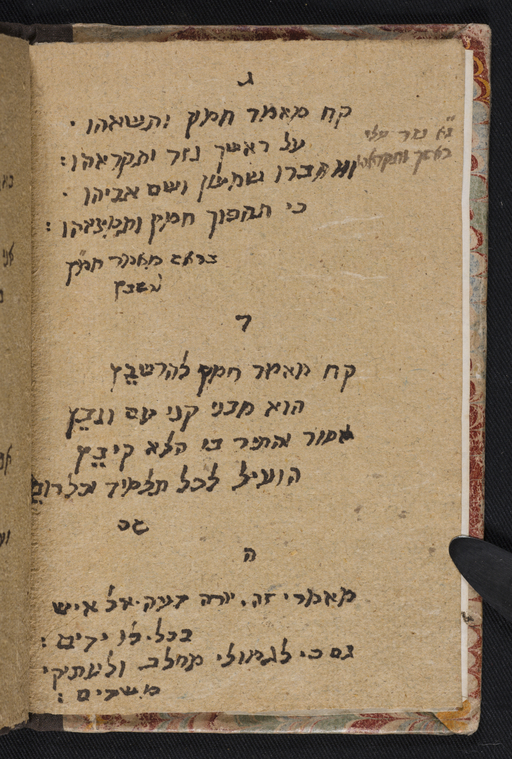 ג
קח מאמר חמץ ותשאהו ·
על ראשך נזר ותקראהו :
ומחברו שמעון ושם אביהו ·
כי תהפוך חמץ ותמצאהו :
נ״א נזר עלי
ראשך ותקראהו
בראש מאמר חמץ
רשבץ
ד
קח מאמר חמץ להרשבץ
הוא מבני קני עם וגבץ
אסור והתיר בו הלא קיבץ
הועיל לכל תלמיד
ה
מאמרי זה, יורה דעה אל איש
בכל לו ידים :
גם כי לגמולי מחלב ולעתיקי
משדים :